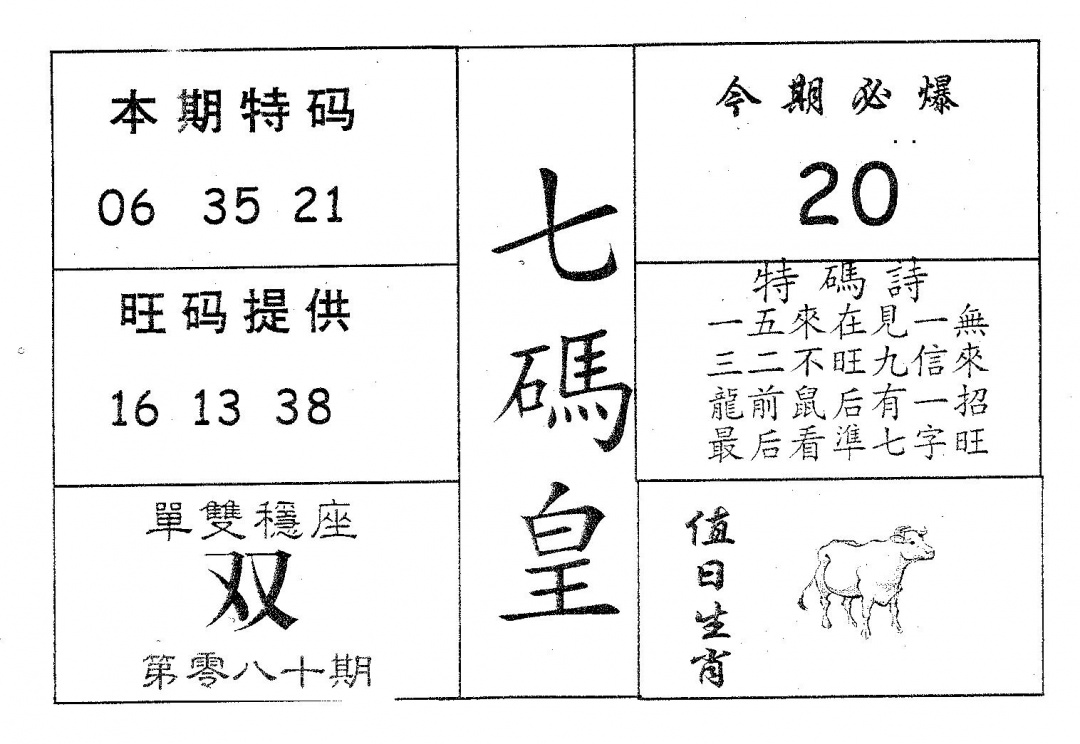 本期特码
06 35 21
旺码提供
16 13 38
單雙穩座
双
第零八十期
七碼皇
今期必爆
20
特碼詩
一五來在見一無
三二不旺九信來
龍前鼠后有一招
最后看準七字旺
值日生肖